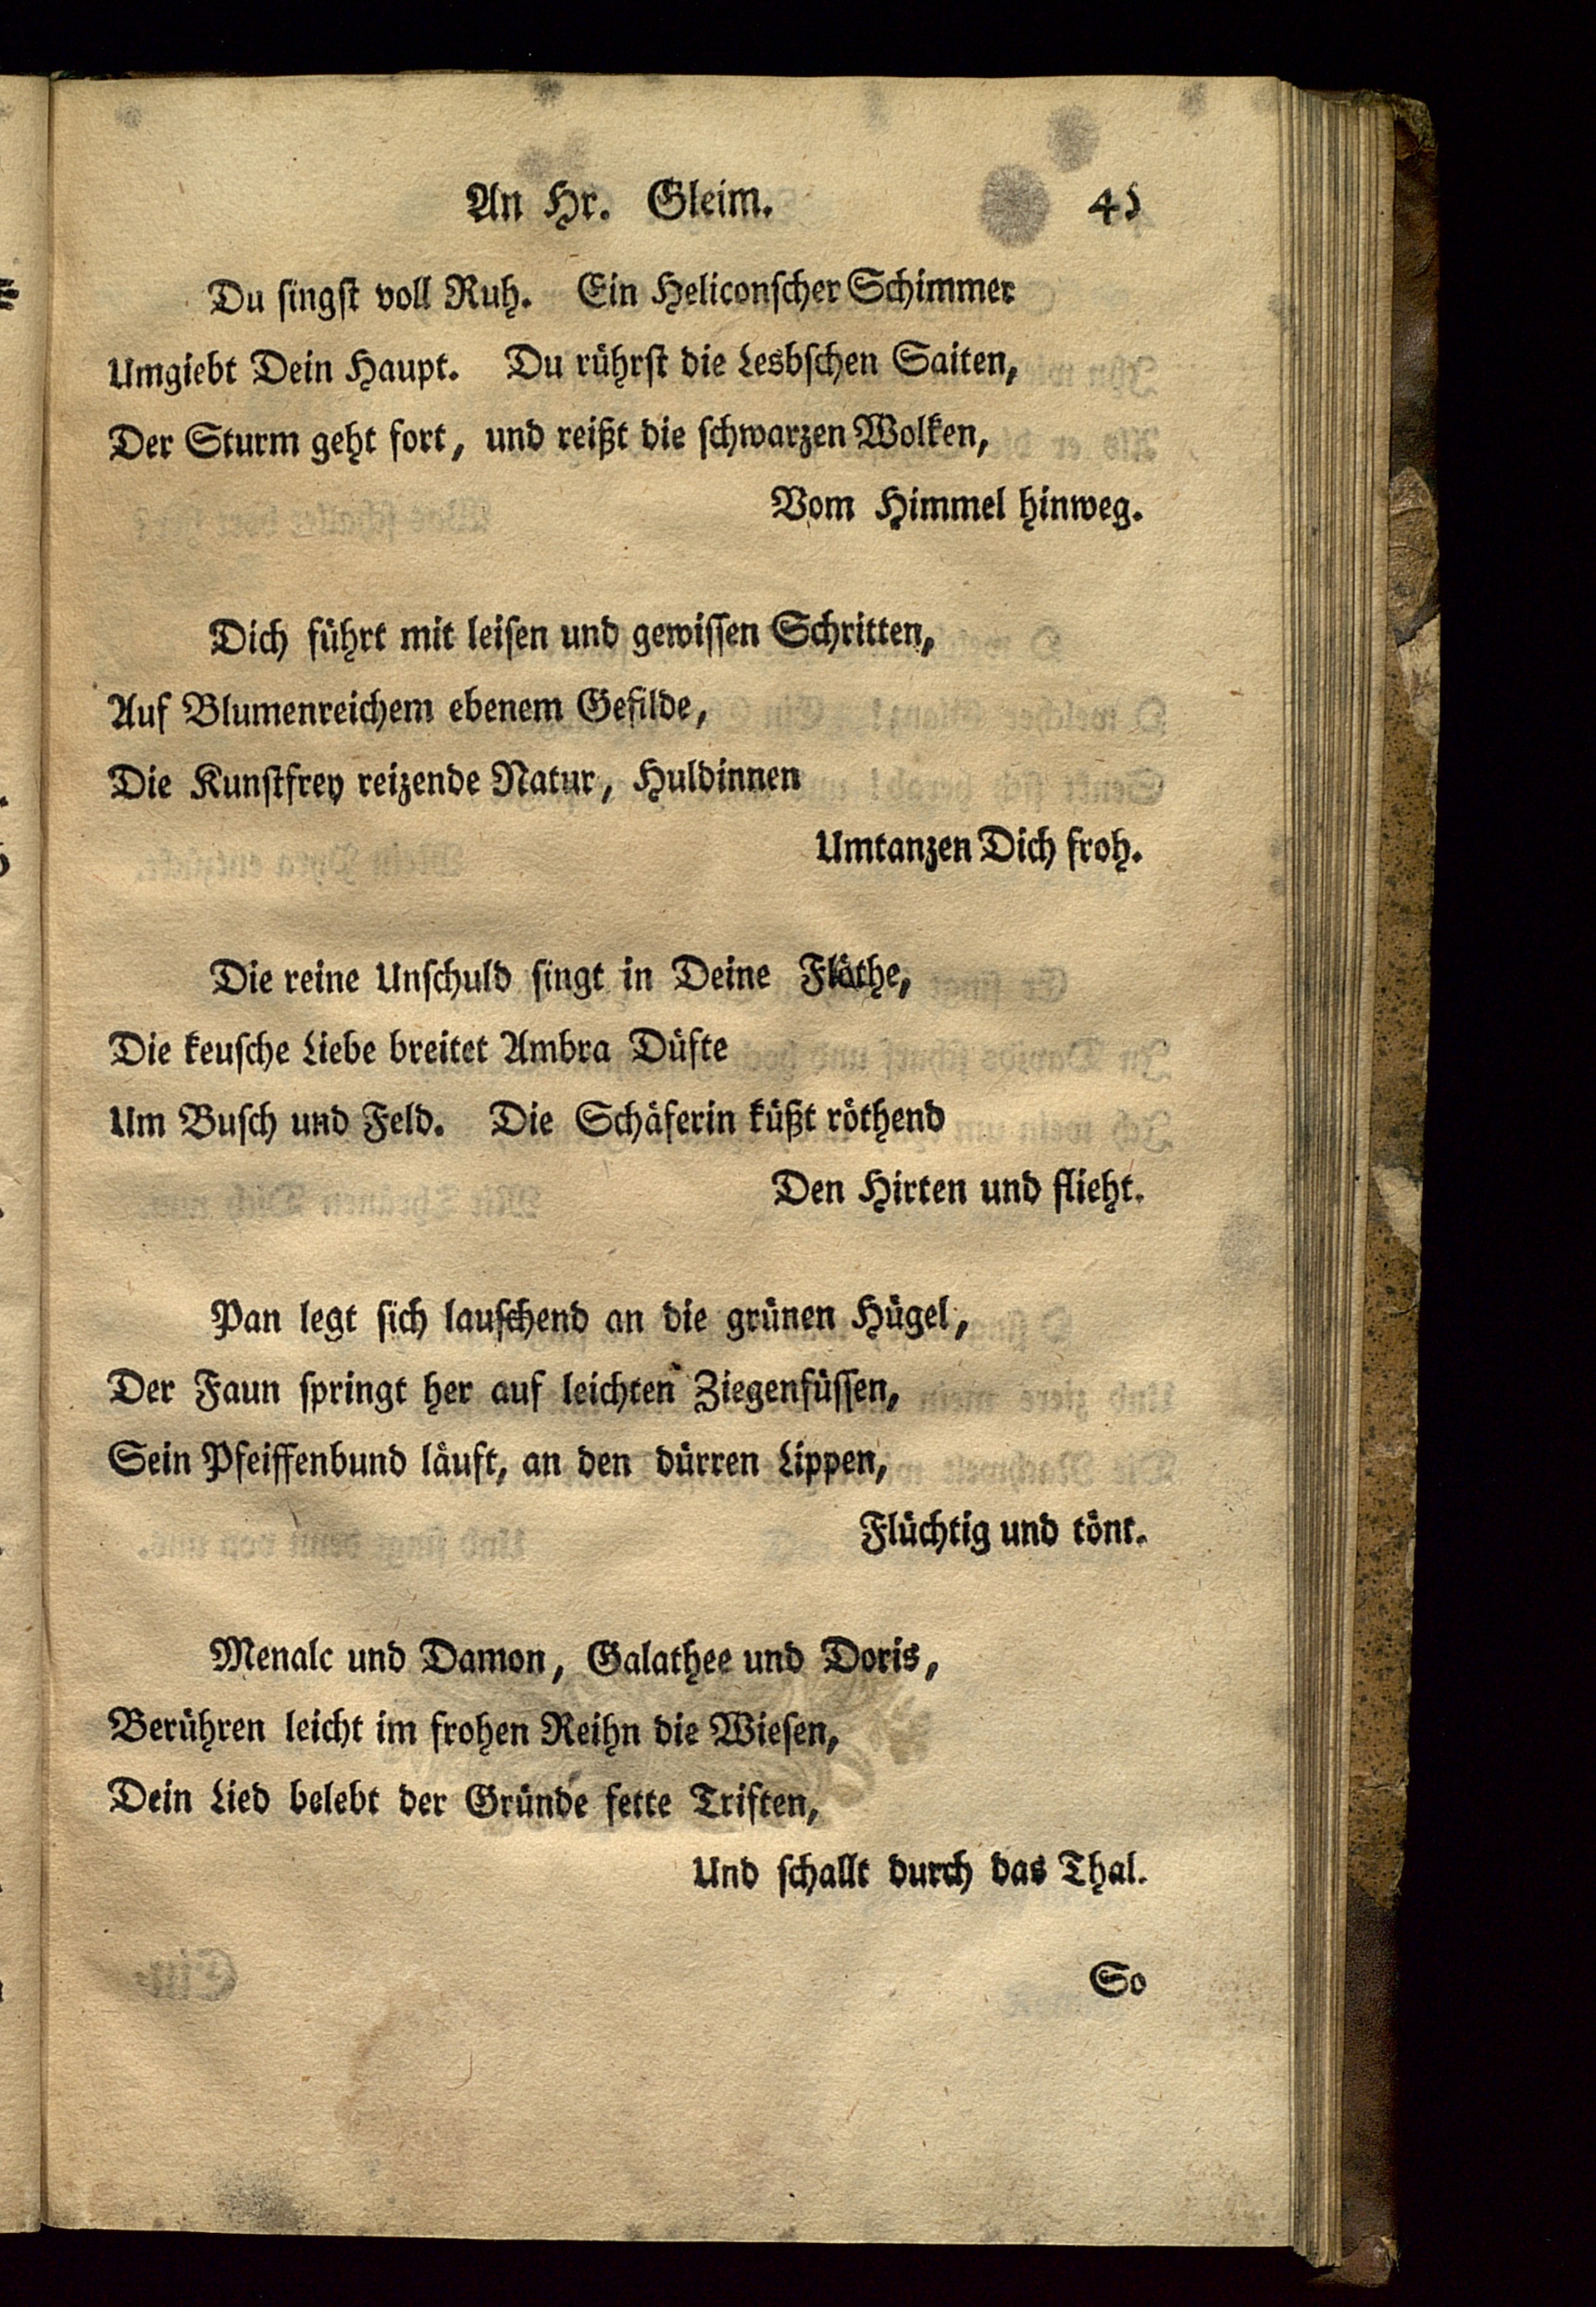 An Hr. Gleim. 45
Du singst voll Ruh. Ein Heliconscher Schimmer
Umgiebt Dein Haupt. Du rührst die Lesbschen Saiten,
Der Sturm geht fort, und reißt die schwarzen Wolken,
Vom Himmel hinweg.
Dich führt mit leisen und gewissen Schritten,
Auf Blumenreichem ebenem Gefilde,
Die Kunstfrey reizende Natur, Huldinnen
Umtanzen Dich froh.
Die reine Unschuld singt in Deine Flöthe,
Die keusche Liebe breitet Ambra Düfte
Um Busch und Feld. Die Schäferin küßt röthend
Den Hirten und flieht.
Pan legt sich lauschend an die grünen Hügel,
Der Faun springt her auf leichten Ziegenfüssen,
Sein Pfeiffenbund läuft, an den dürren Lippen,
Flüchtig und tönt.
Menalc und Damon, Galathee und Doris,
Berühren leicht im frohen Reihn die Wiesen,
Dein Lied belebt der Gründe fette Triften,
Und schallt durch das Thal.
So